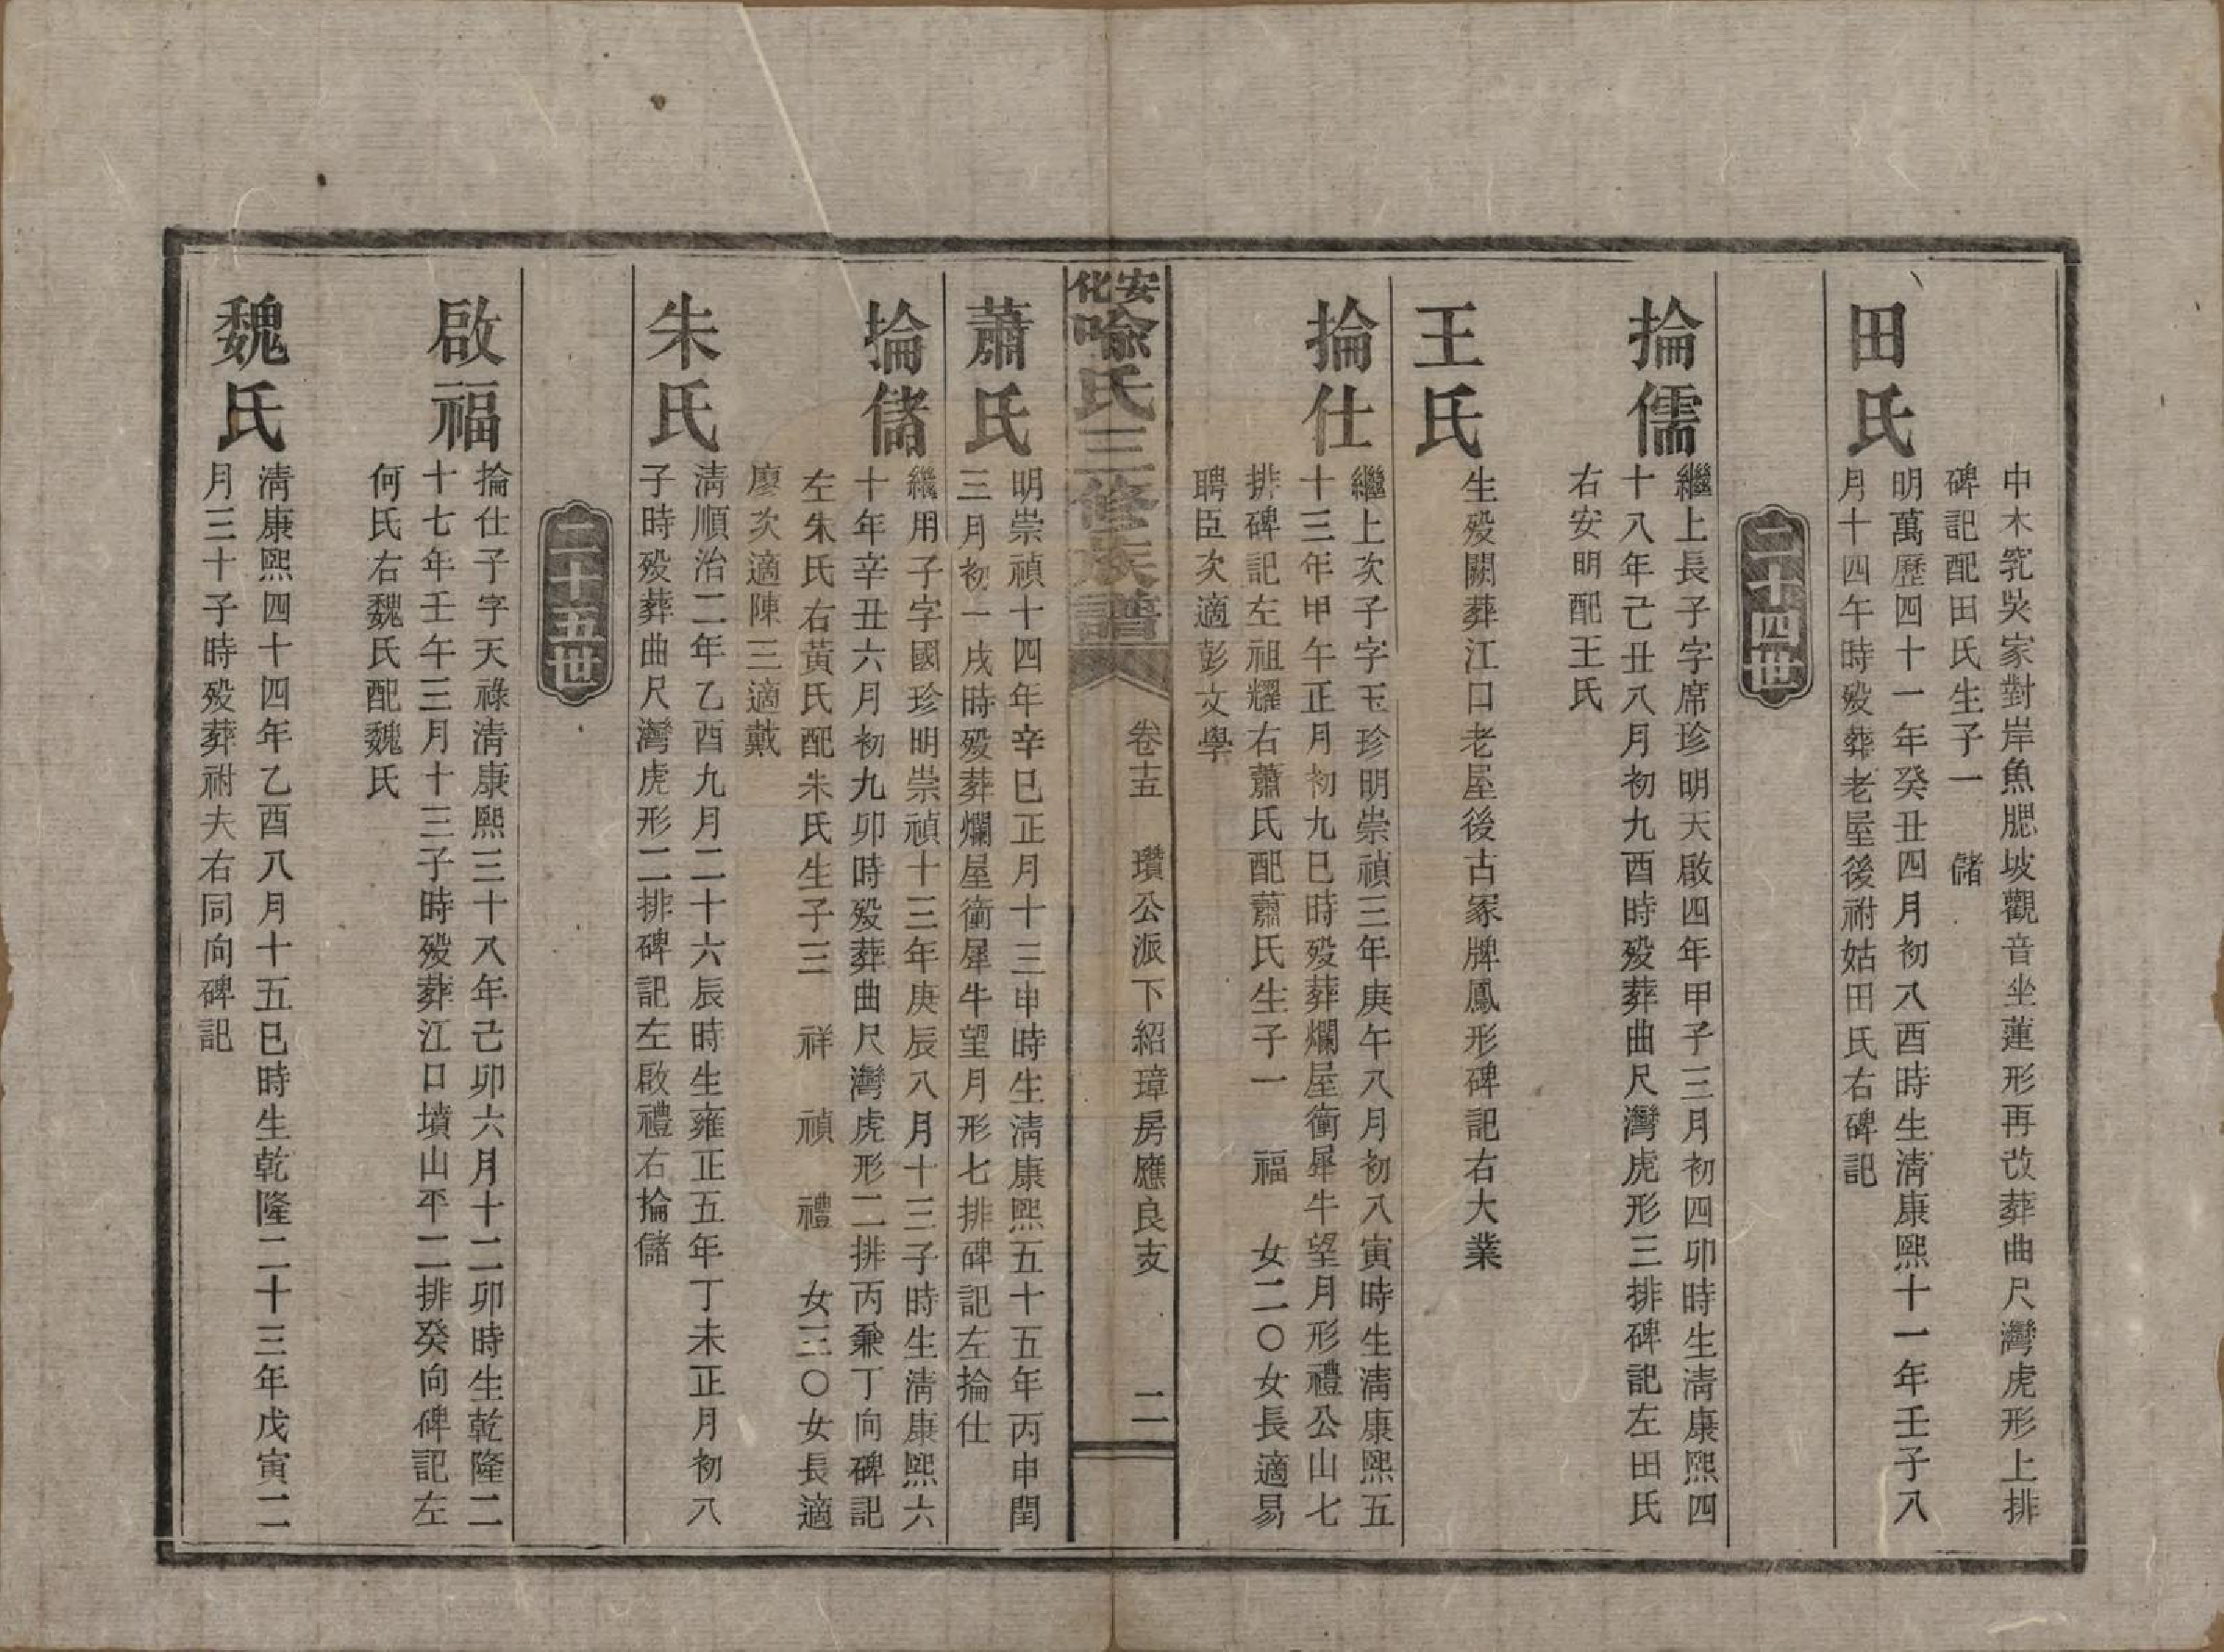 中木乳吳家對岸魚腮坡觀音坐蓮形再改葬曲尺灣虎形上排
碑記配田氏生子一　儲
田氏
明萬歷四十一年癸丑四月初八酉時生清康熙十一年壬子八
月十四午時歿葬老屋後祔姑田氏右碑記
二十四世
掄儒
繼上長子字席珍明天啟四年甲子三月初四卯時生清康熙四
十八年己丑八月初九酉時歿葬曲尺灣虎形三排碑記左田氏
右安明配王氏
王氏
生歿闕葬江口老屋後古冢牌鳳形碑記右大業
掄仕
繼上次子字玉珍明崇禎三年庚午八月初八寅時生清康熙五
十三年甲午正月初九巳時歿葬爛屋衝犀牛望月形禮公山七
排碑記左祖耀右蕭氏配蕭氏生子一　福　女二〇女長適易
聘臣次適彭文學
安化喻氏三修族譜　卷十五　瓚公派下紹璋房應良支　二
蕭氏
明崇禎十四年辛巳正月十三申時生清康熙五十五年丙申閏
三月初一戌時歿葬爛屋衝犀牛望月形七排碑記左掄仕
掄儲
繼用子字國珍明崇禎十三年庚辰八月十三子時生清康熙六
十年辛丑六月初九卯時歿葬曲尺灣虎形二排丙兼丁向碑記
左朱氏右黃氏配朱氏生子三　祥　禎　禮　女三〇女長適
廖次適陳三適戴
朱氏
清順治二年乙酉九月二十六辰時生雍正五年丁未正月初八
子時歿葬曲尺灣虎形二排碑記左啟禮右掄儲
二十五世
啟福
掄仕子字天祿清康熙三十八年己卯六月十二卯時生乾隆二
十七年壬午三月十三子時歿葬江口墳山平二排癸向碑記左
何氏右魏氏配魏氏
魏氏
清康熙四十四年乙酉八月十五巳時生乾隆二十三年戊寅二
月三十子時歿葬祔夫右同向碑記